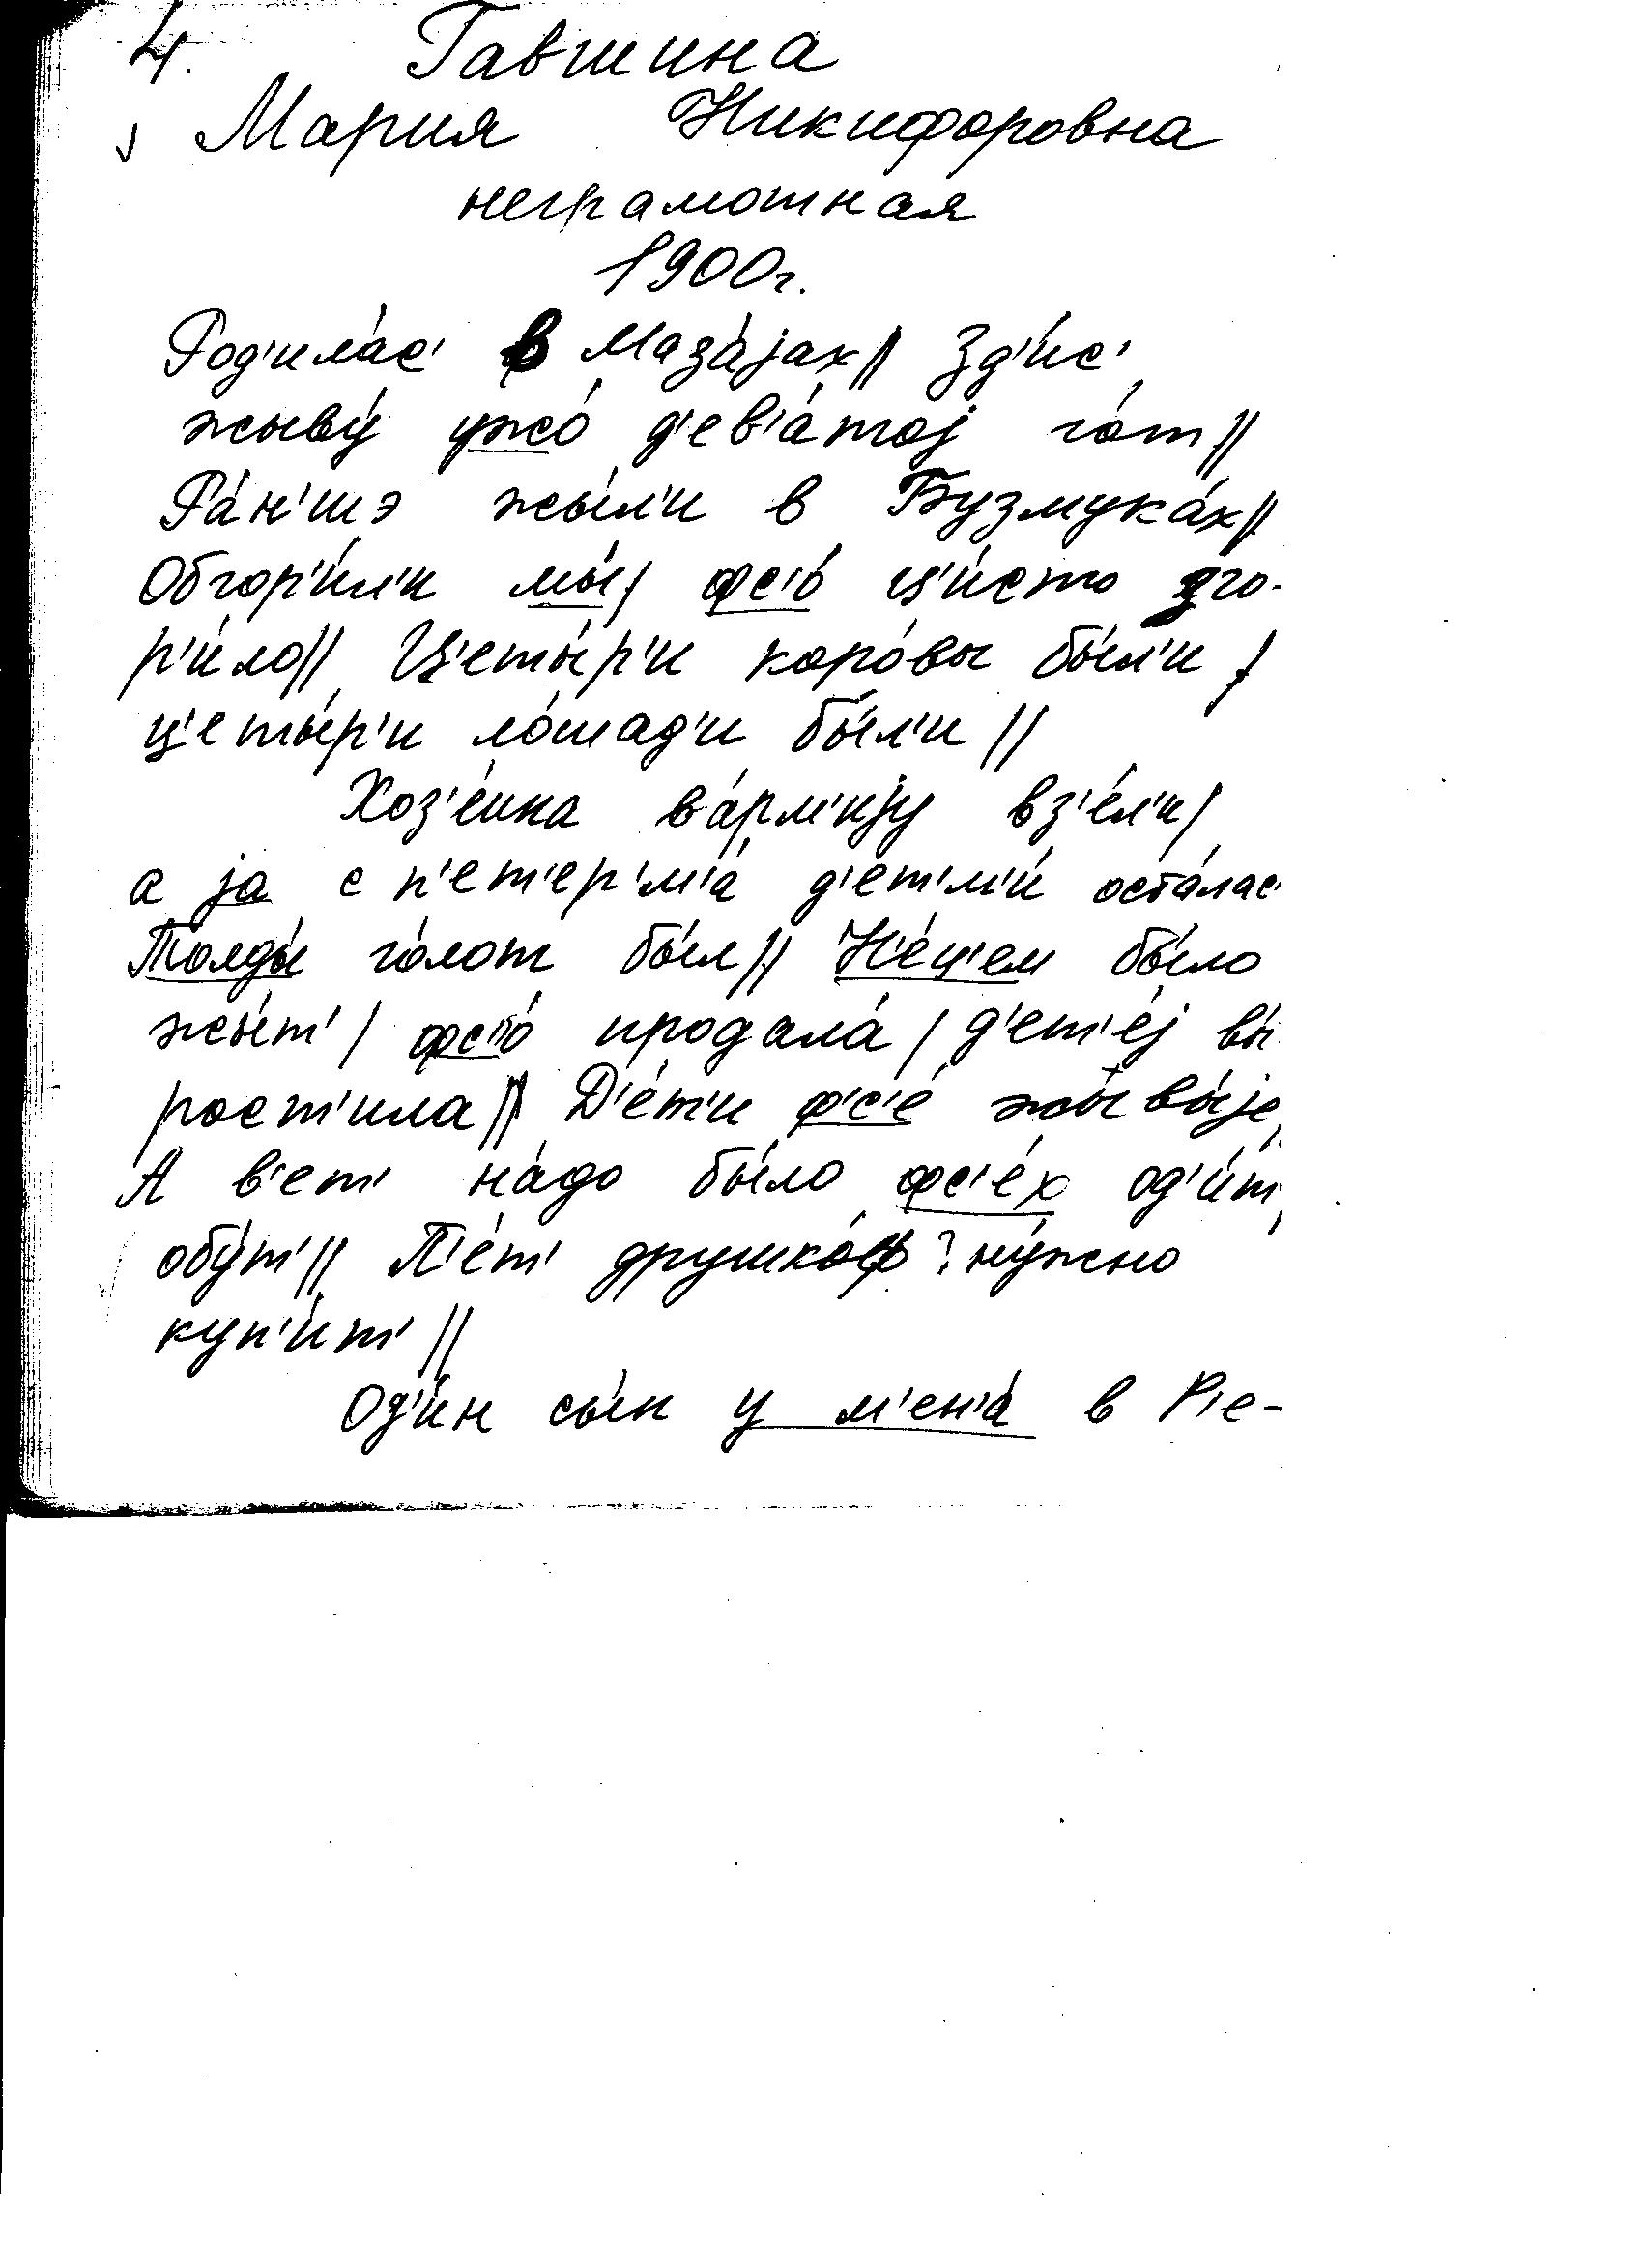 4. Гавшина
Мария Никифоровна
неграмотная
1900г.
Род'ила́с' в Маза́jах // Зд'и́с'
жыву́ ужо́ д'ев'а́тоj го́т //
Ра́н'шэ жы́л'и в Бузмука́х //
Обгор'и́л'и мы́ / фс'о́ ц'и́сто зго-
р'и́ло // Ц'еты́р'и коро́вы бы́л'и /
ц'еты́р'и ло́шад'и бы́л'и //
Хоз'е́ина в а́рм'иjу вз'е́л'и /
а jа с п'ет'ер'м'а́ д'ет'м'и́ оста́лас'
Толды́ го́лот бы́л // Н'е́ц'ем бы́ло
жы́т' / фс'о́ продала́ / д'ет'е́j вы́
рост'ила // Д'е́т'и ф'с'е́ жывы́jе
А в'ет' на́до бы́ло фс'е́х од'и́т'
обу́т' // П'е́т' друшко́ф ? ну́жно
куп'и́т' //
Од'и́н сы́н у м'ен'а́ в Р'е-